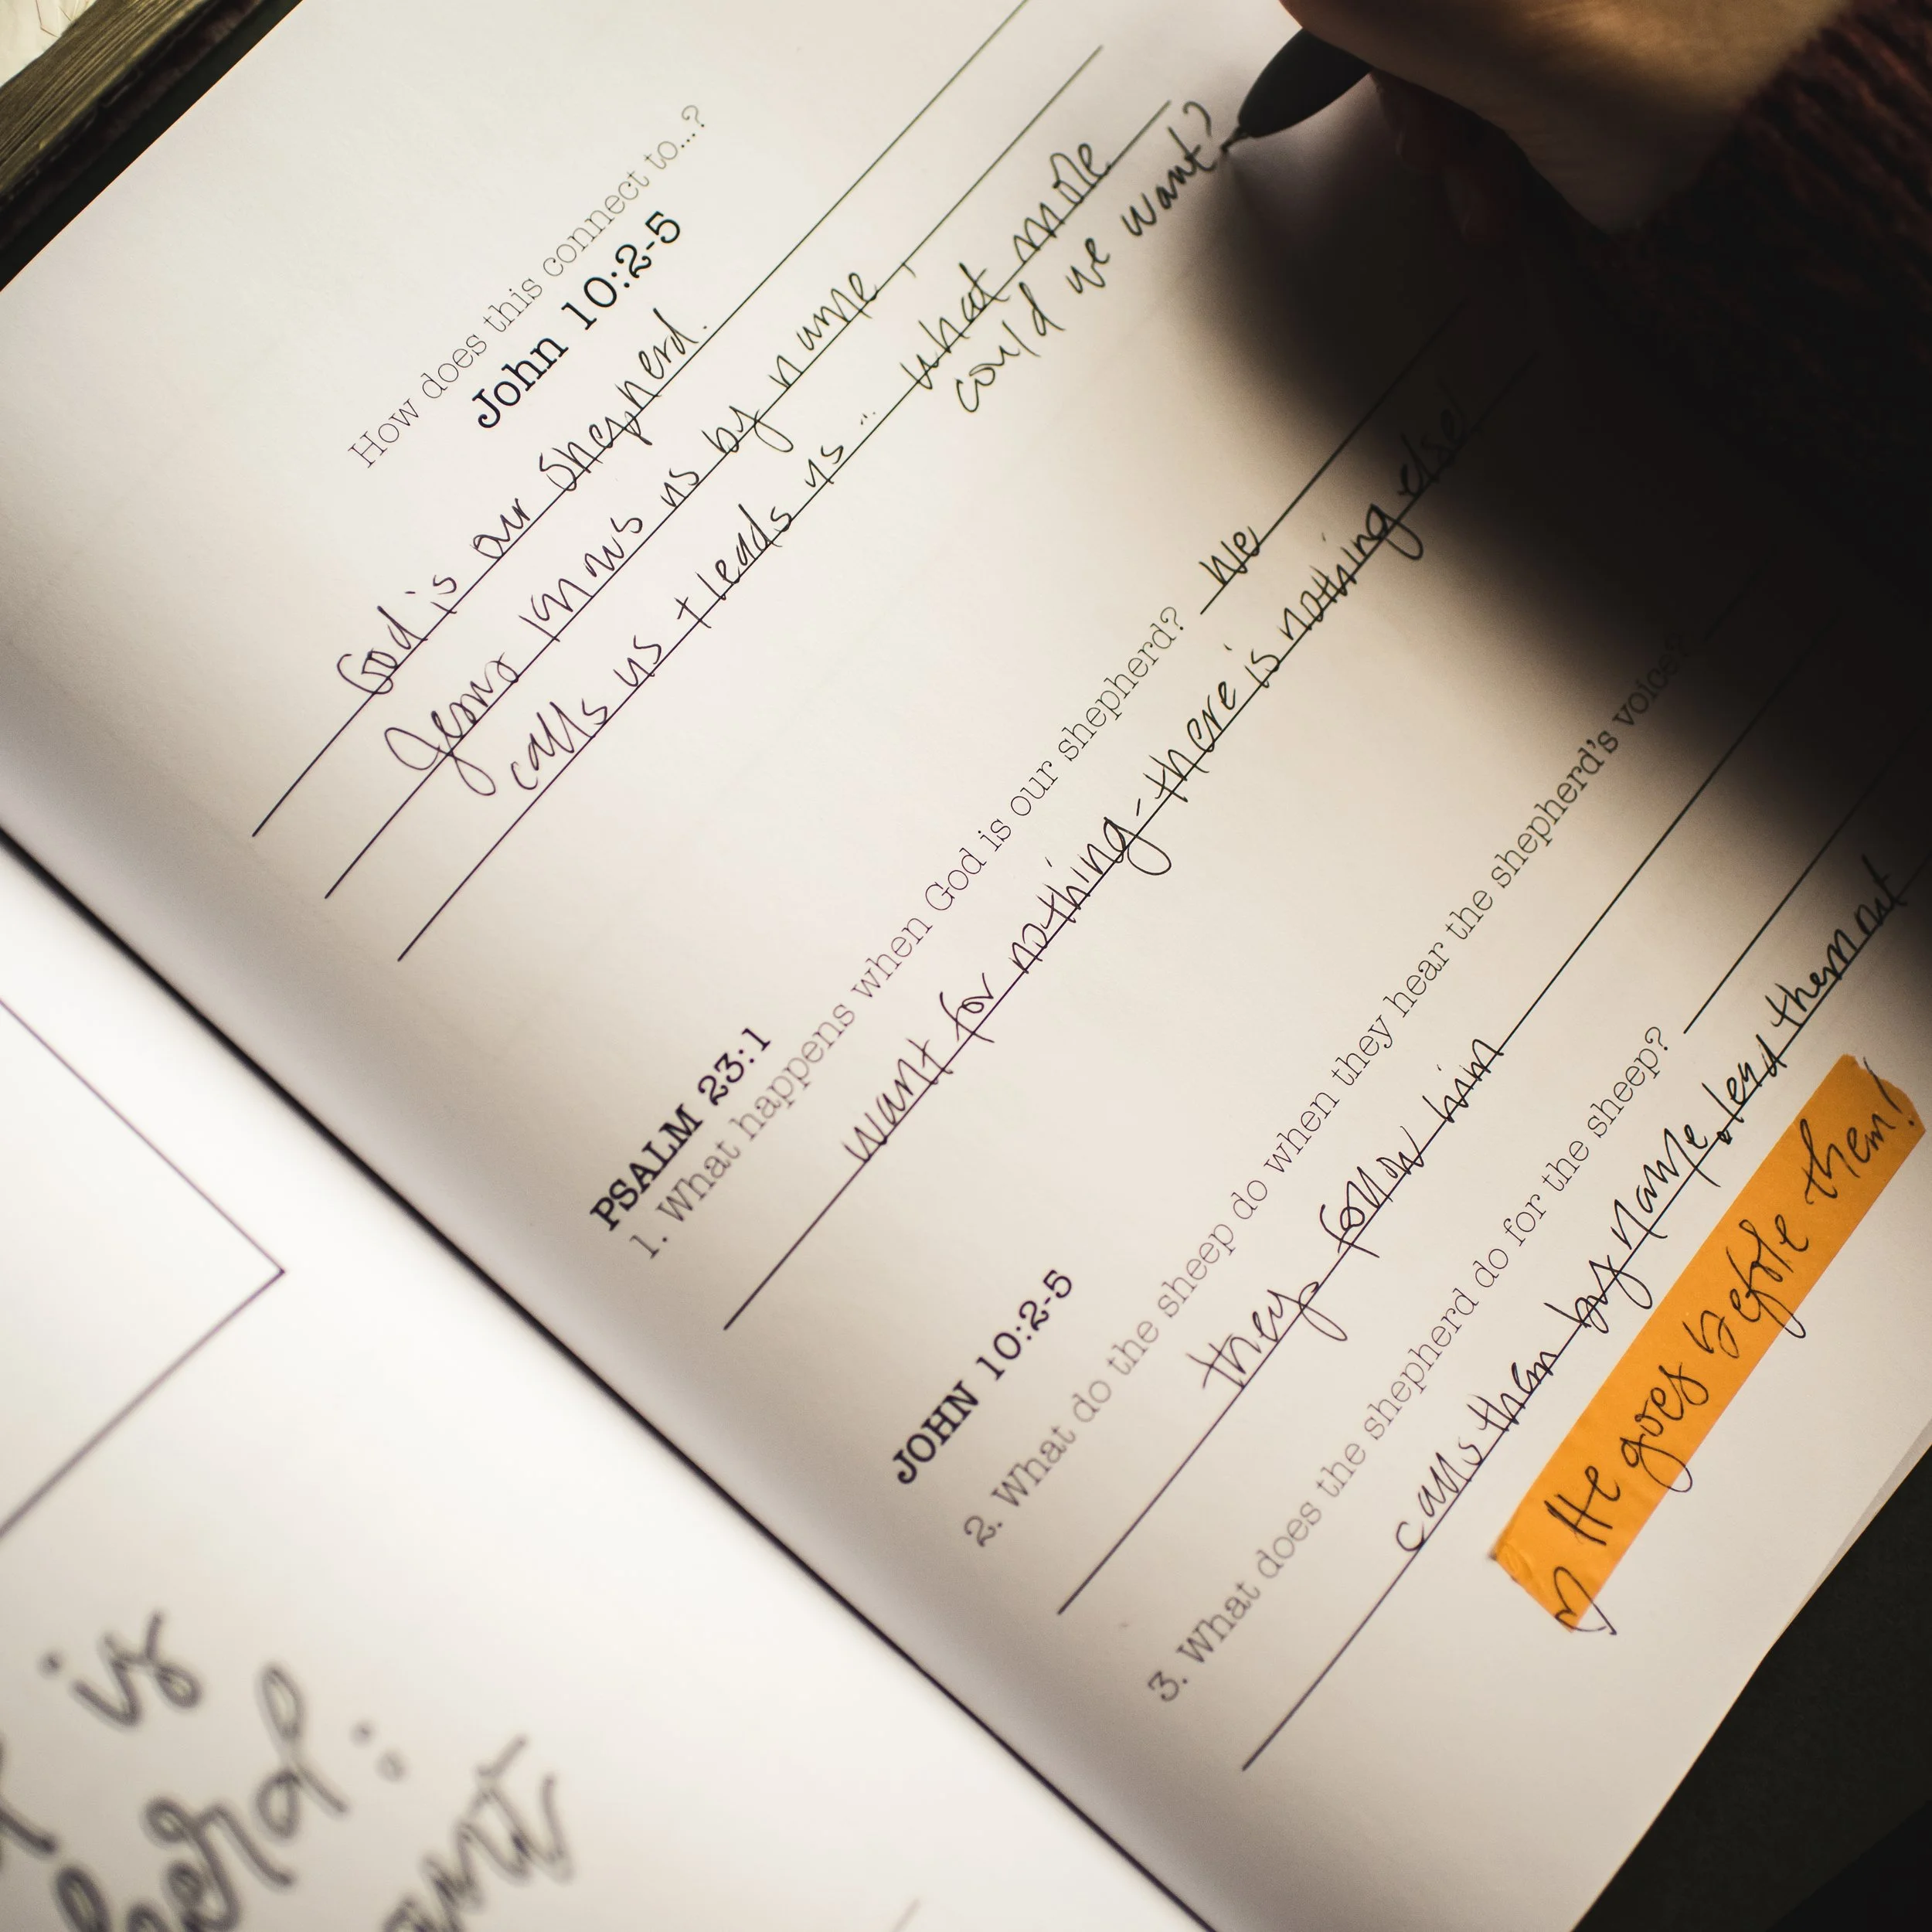 How does this connect to...?
John 10:2-5
God is our shepherd.
Jesus knows us by name,
calls us + leads us... what more
could we want?
PSALM 23:1
1. What happens when God is our shepherd? We
want for nothing - there is nothing else!
JOHN 10:2-5
2. What do the sheep do when they hear the shepherd's voice?
they follow him
3. What does the shepherd do for the sheep?
calls them by name, lead them out
He goes before them!
is